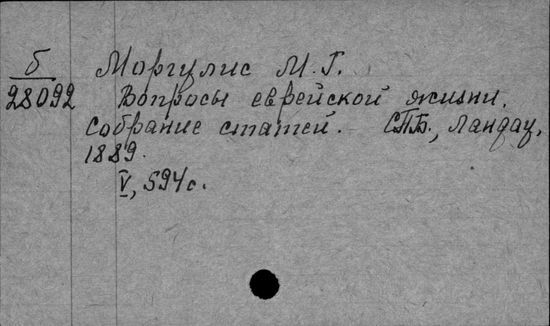 б Моргулис М. Г.
28092 Вопросы еврейской жизни.
Собрание статей. СПБ., Ландау,
1889.
V, 594 с.